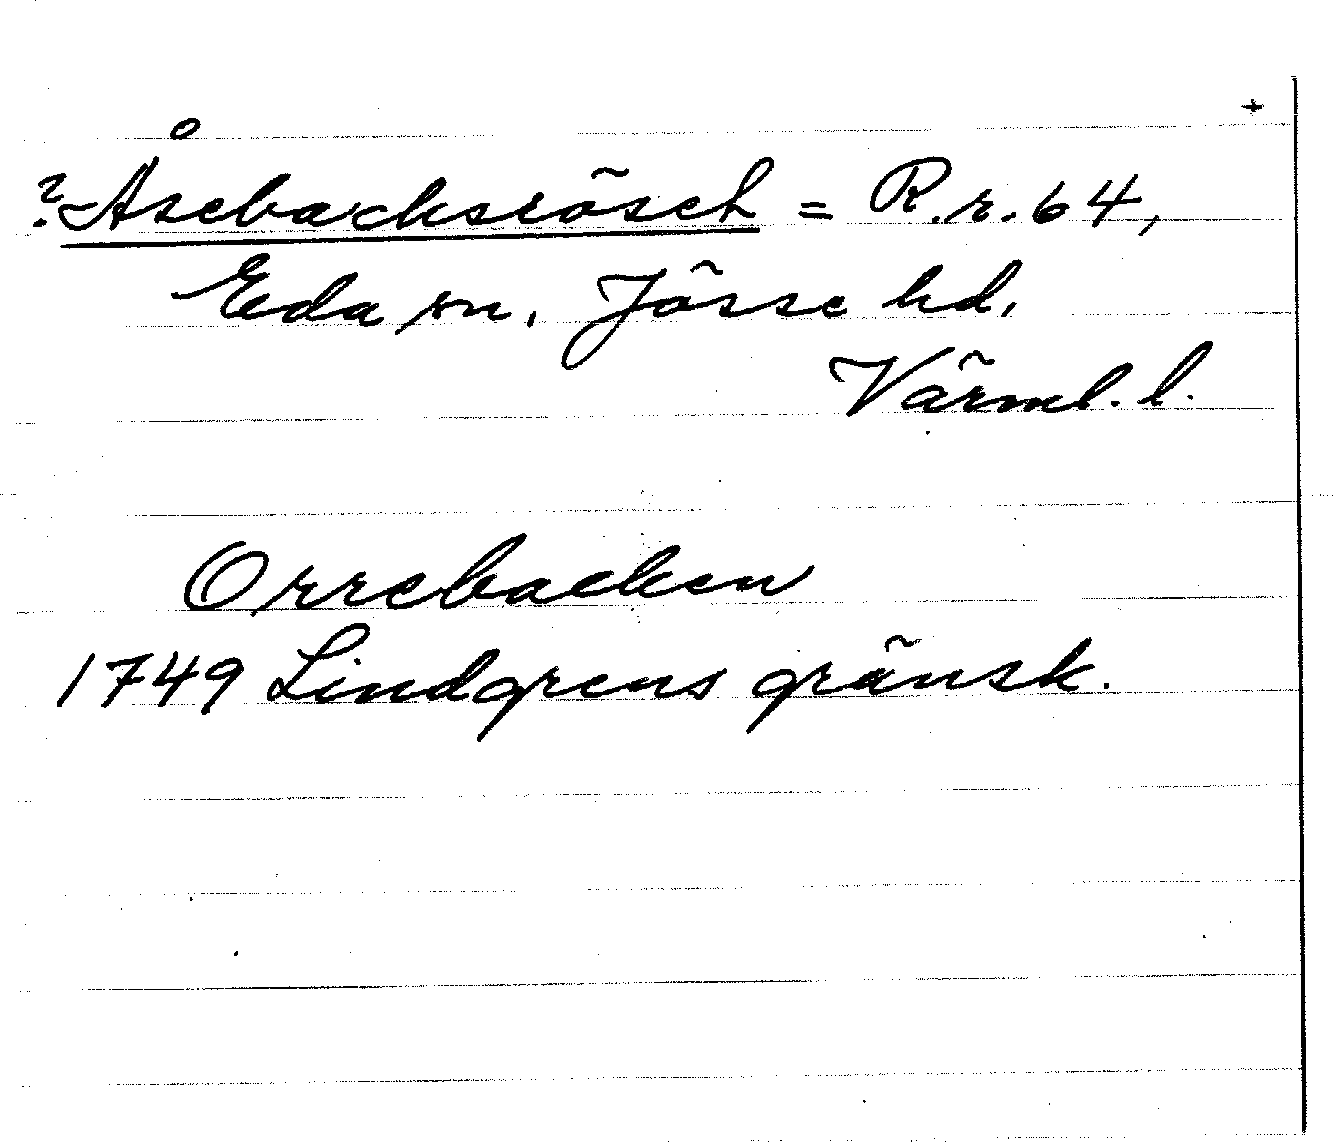 +
? Åsebacksrösch = R.r. 64,
Eda sn, Jösse hd,
Värml. l.
Orrebacken
1749 Lindgrens gränsk.